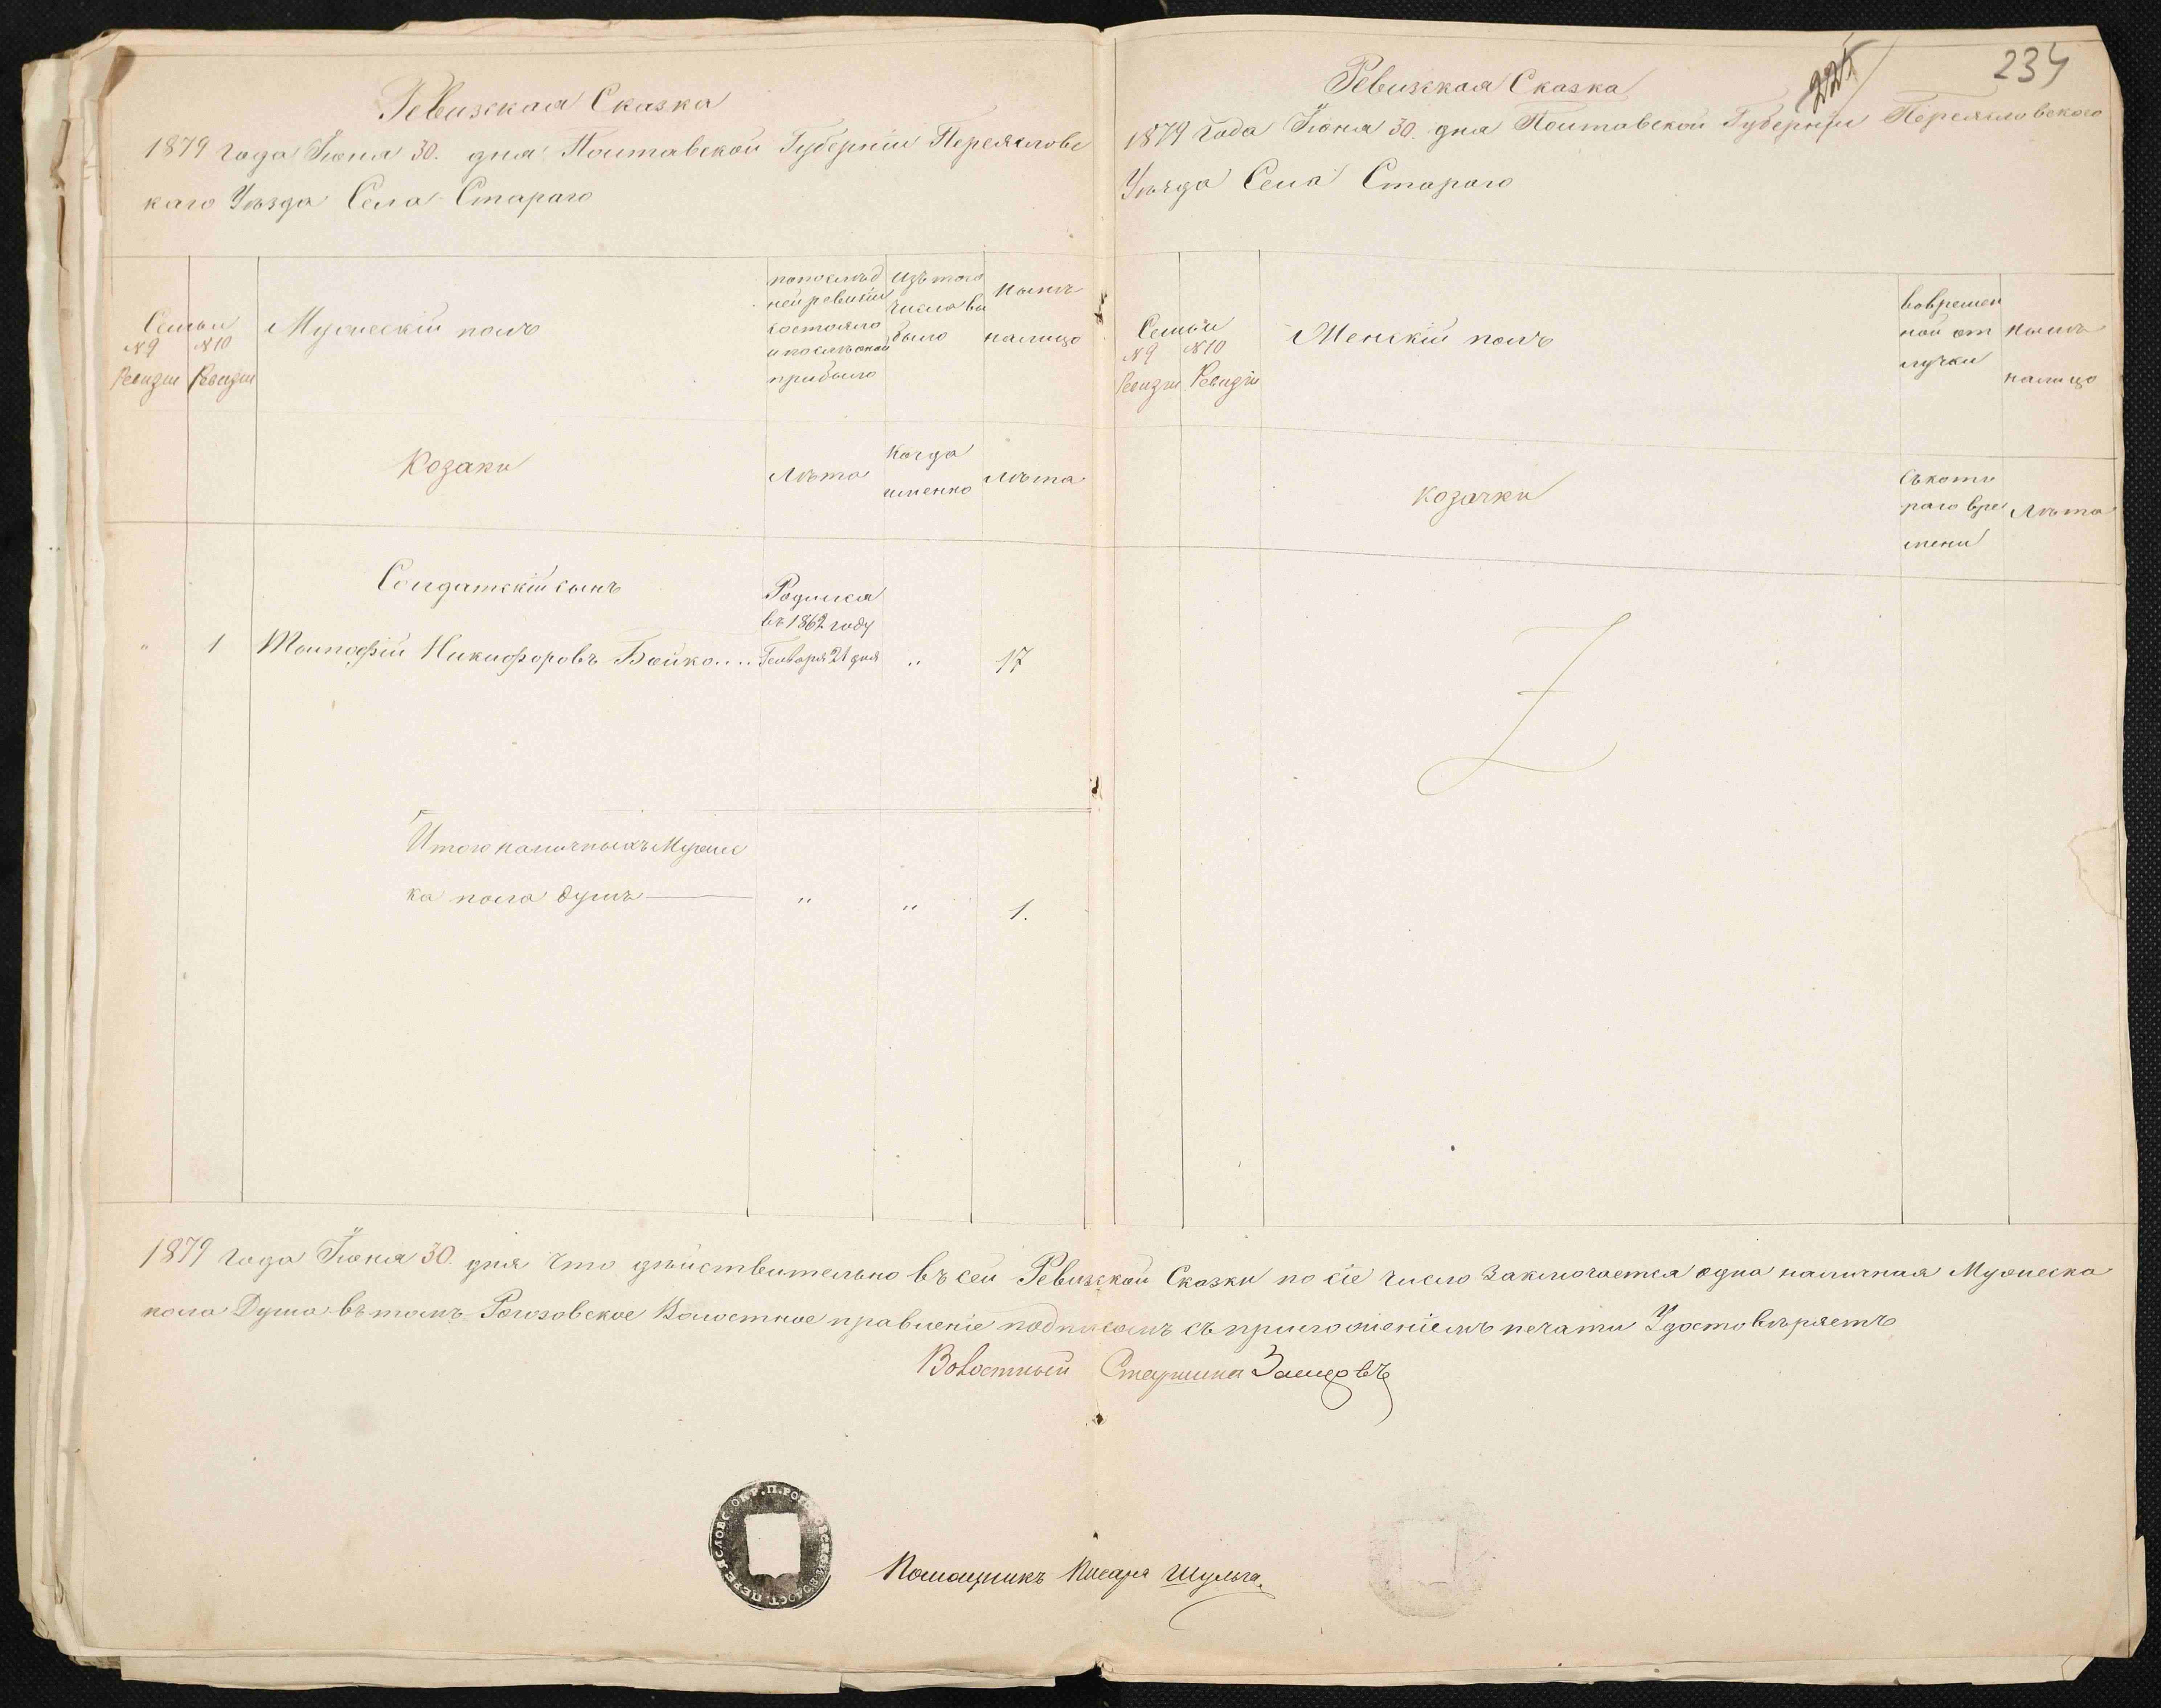 Ревизская Сказка
1879 года Іюня 30. дня Полтавской Губерніи Переяславс
каго Уѣзда Села Стараго
Семьи
№ 9 № 10
Ревизіи Ревизіи
Мужескій полъ
по послѣд
ней ревизіи
состояло
и послѣ оной
прибыло
Изъ того
числа вы
было
Нынѣ
налицо
Козаки
Лѣта
Когда
именно
Лѣта
Солдатскій сынъ
Родился
въ 1862 году
" 1 Никифоровъ Бойко.... Генваря 21 дня " 17
Итого наличныхъ Мужес
ка пола душъ — " " 1.
234
225
Ревизская Сказка
1879 года Іюня 30. дня Полтавской Губерніи Переясловского
Уѣзда Села Стараго
Семьи
№ 9 № 10
Ревизіи Ревизіи
Женскій полъ
во времен
ной от
лучки
нынѣ
налицо
Козачки
Съ кото
раго вре
мени
Лѣта
1879 года Іюня 30. дня что дѣйствительно въ сей Ревизской Сказки по сіе число Заключается одна наличная Мужеска
пола Душа въ томъ Рогозовское Волостное правленіе подписомъ съ приложеніемъ печати Удостовѣряетъ
Волостный Старшина
Помощникъ Писаря Шульга.